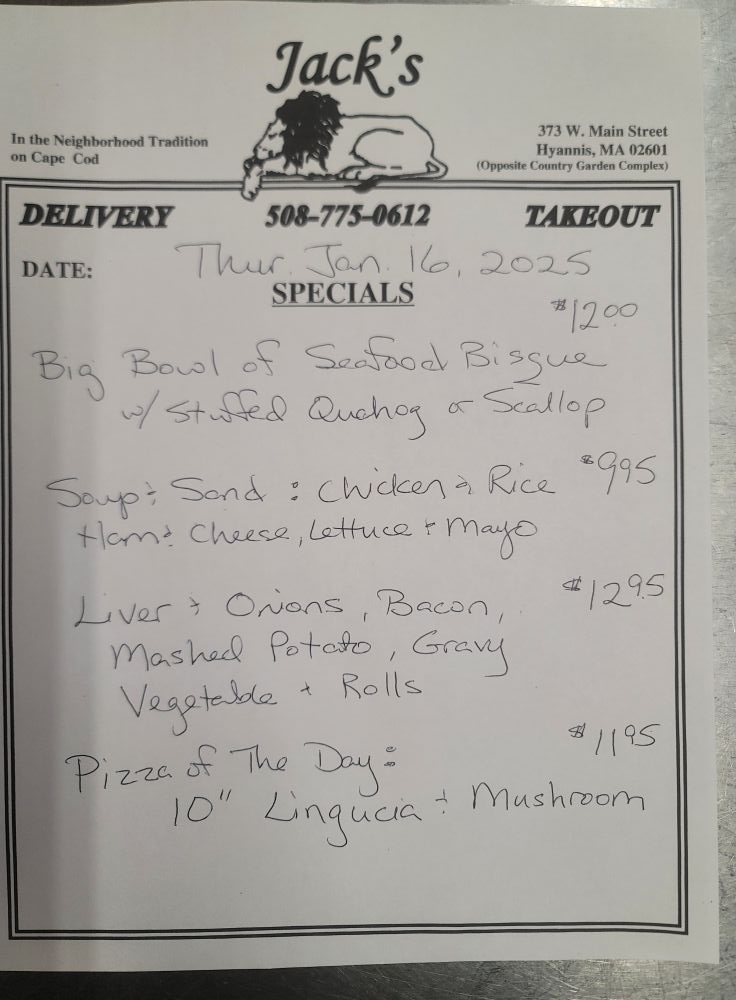 Jack's
In the Neighborhood Tradition
on Cape Cod
373 W. Main Street
Hyannis, MA 02601
(Opposite Country Garden Complex)
DELIVERY 508-775-0612 TAKEOUT
DATE: Thur. Jan. 16, 2025
SPECIALS
$12.00
Big Bowl of Seafood Bisque
w/ Stuffed Quahog or Scallop
Soup & Sand : Chicken & Rice $9.95
Ham & Cheese, Lettuce + Mayo
Liver & Onions, Bacon, $12.95
Mashed Potato, Gravy
Vegetable + Rolls
$11.95
Pizza of The Day:
10" Lingucia + Mushroom